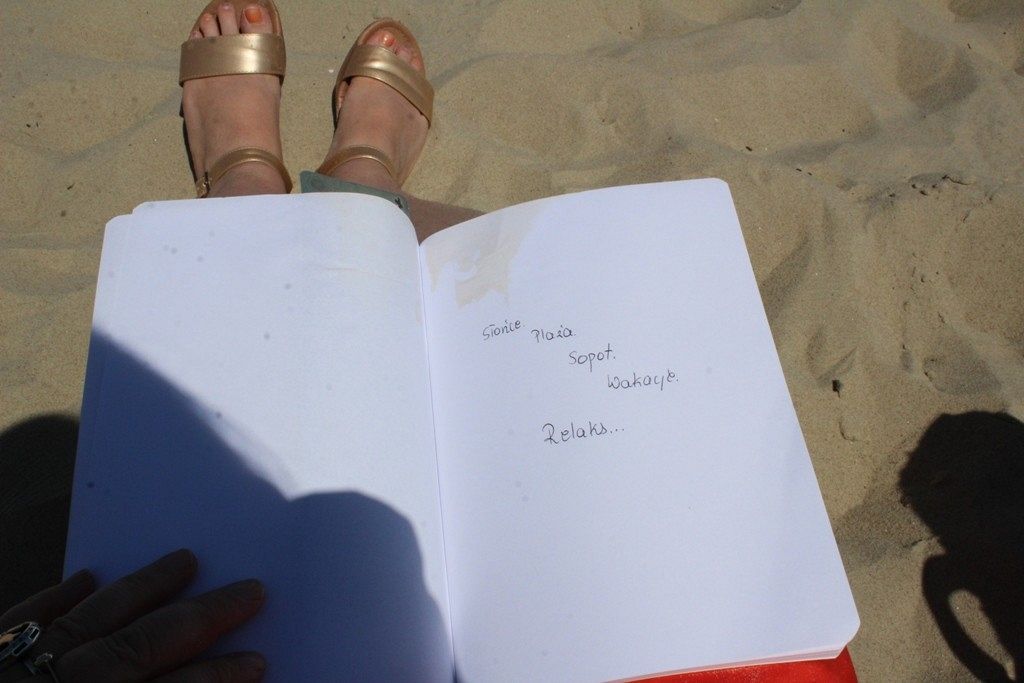 Słońce.
Plaża.
Sopot.
Wakacje.
Relaks...